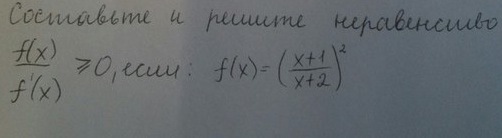 Составьте и решите неравенство
f(x)/f'(x) ≥0, если: f(x)=((x+1)/(x+2))²